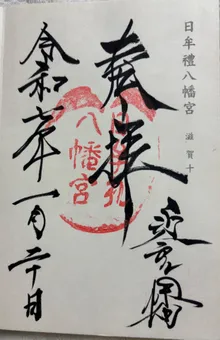 日牟禮八幡宮 滋賀十
奉拝
近江八幡
八幡宮
令和七年一月二十日